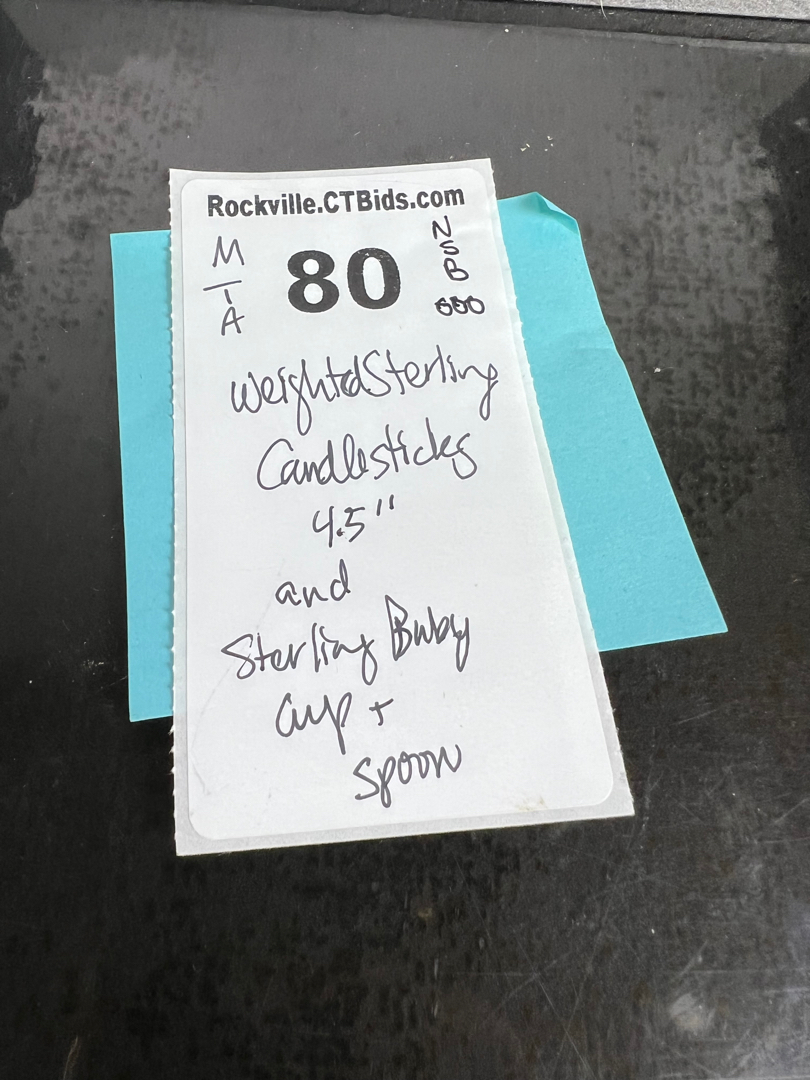 Rockville.CTBids.com
M
I
A
80
N
S
B
Weighted Sterling
Candlesticks
4.5"
and
Sterling Baby
Cup +
Spoon